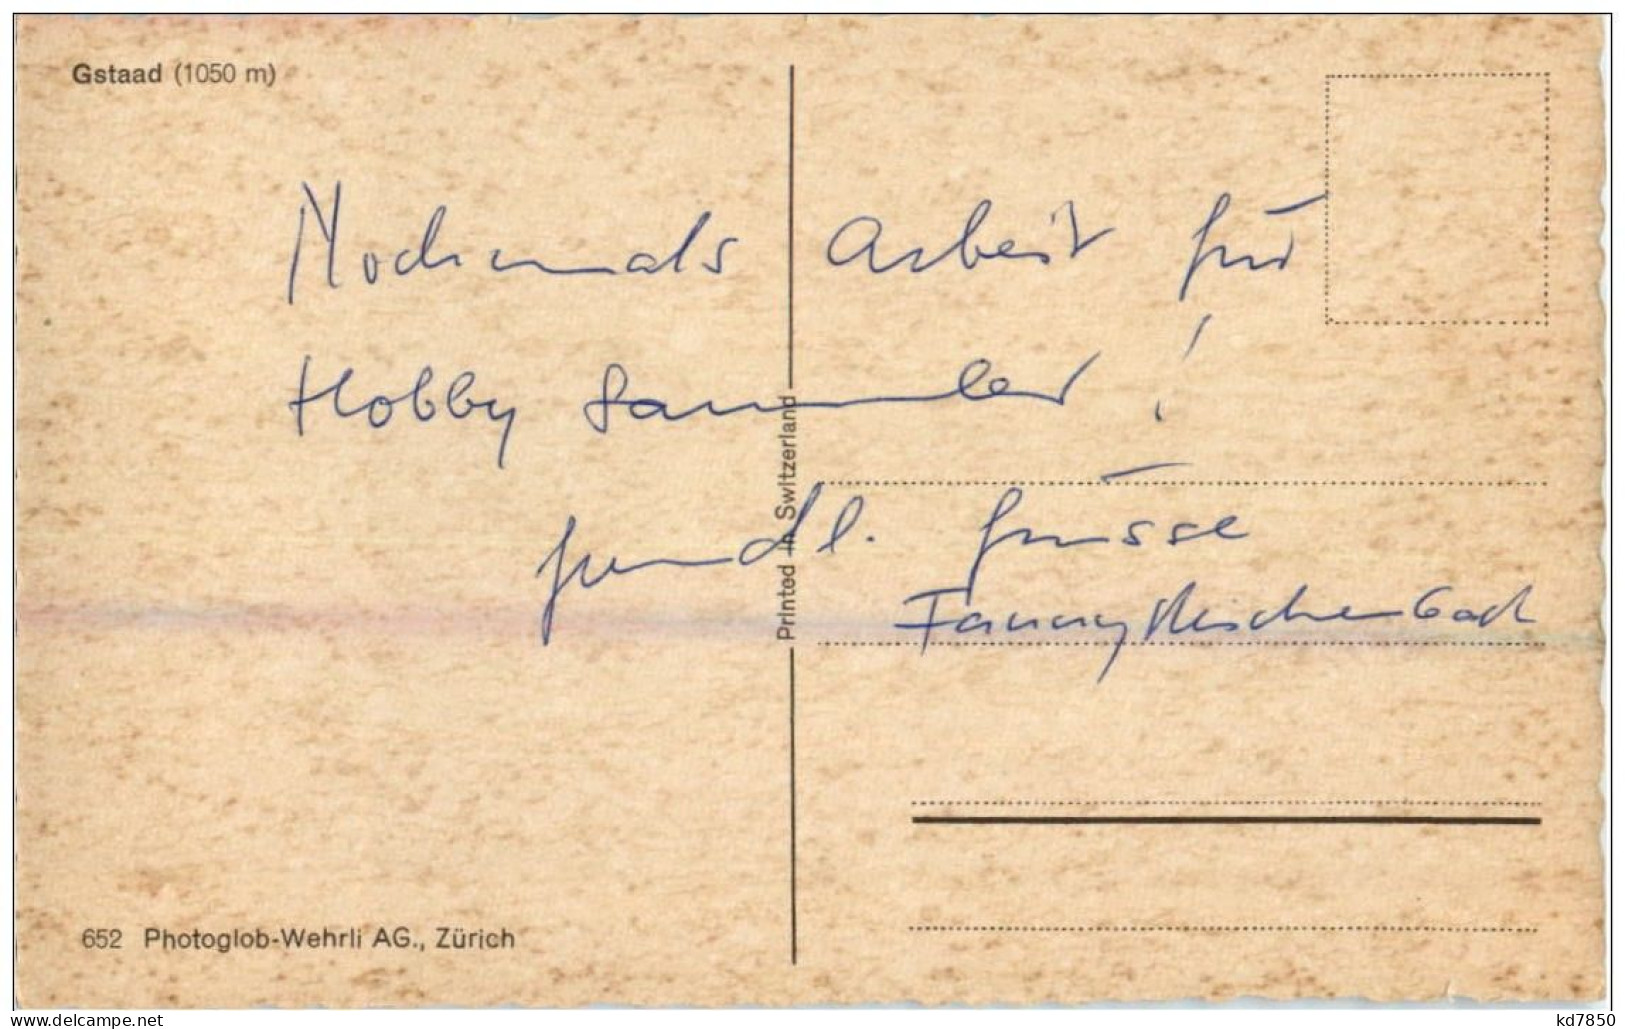 Gstaad (1050 m)
Nochmals Arbeit für
Hobby Sammler!
freundl. Grüsse
Fanny
Printed in Switzerland
652 Photoglob-Wehrli AG., Zürich
www.delcampe.net
kd7850